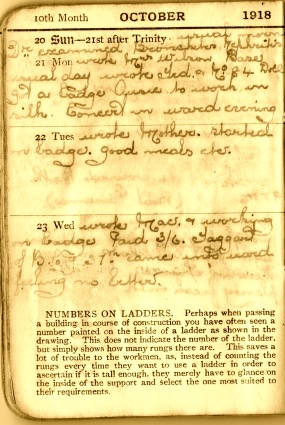 10th Month OCTOBER 1918
20 SUN—21st after Trinity. usual
Dr examined Bronchitis
21 Mon wrote Mrs Wilson Base
usual day wrote
Got a badge Queue to work in
silk. Concert in ward evening
22 Tues wrote Mother. started
on badge. good meals etc.
23 Wed wrote Mac. & working
on badge Paid 3/6. Taggart
of B. came into ward
feeling no better.
NUMBERS ON LADDERS. Perhaps when passing
a building in course of construction you have often seen a
number painted on the inside of a ladder as shown in the
drawing. This does not indicate the number of the ladder,
but simply shows how many rungs there are. This saves a
lot of trouble to the workmen, as, instead of counting the
rungs every time they want to use a ladder in order to
ascertain if it is tall enough, they merely have to glance on
the inside of the support and select the one most suited to
their requirements.